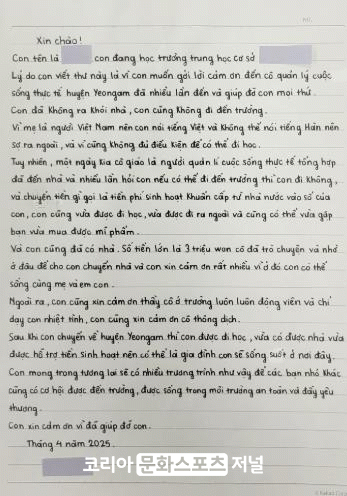 Xin chào!
Con tên là con đang học trường trung học cơ sở
Lý do con viết thư này là vì con muốn gởi lời cảm ơn đến cô quản lý cuộc
sống thực tế huyện Yeongam đã nhiều lần đến và giúp đỡ con mọi thứ.
Con đã không ra khỏi nhà, con cũng không đi đến trường.
Vì mẹ là người Việt Nam nên con nói tiếng Việt và không thể nói tiếng Hàn nên
sợ ra ngoài, và vì cũng không đủ điều kiện để có thể đi học.
Tuy nhiên, một ngày kia cô giáo là người quản lí cuộc sống thực tế tổng hợp
đã đến nhà và nhiều lần hỏi con nếu có thể đi đến trường thì con đi không,
và chuyển tiền gì gọi là tiền phí sinh hoạt khuẩn cấp từ nhà nước vào sổ của
con, con cũng vừa được đi học, vừa được đi ra ngoài và cũng có thể vừa gặp
bạn vừa mua được mĩ phẩm.
Và con cũng đã có nhà. Số tiền lớn là 3 triệu won cô đã trò chuyện và nhờ
ở đâu để cho con chuyển nhà và con xin cảm ơn rất nhiều vì ở đó con có thể
sống cùng mẹ và em con.
Ngoài ra, con cũng xin cảm ơn thầy cô ở trường luôn luôn động viên và chỉ
dạy con nhiệt tình, con cũng xin cảm ơn cô thông dịch.
Sau khi con chuyển về huyện Yeongam thì con được đi học, vừa có được nhà vừa
được hỗ trợ tiền sinh hoạt nên có thể là gia đình con sẽ sống suốt ở nơi đây.
Con mong trong tương lai sẽ có nhiều trương trình như vậy để các bạn nhỏ khác
cũng có cơ hội được đến trường, được sống trong môi trường an toàn và đầy yêu
thương.
Con xin cảm ơn vì đã giúp đỡ con.
Tháng 4 năm 2025.
코리아 문화스포츠 저널